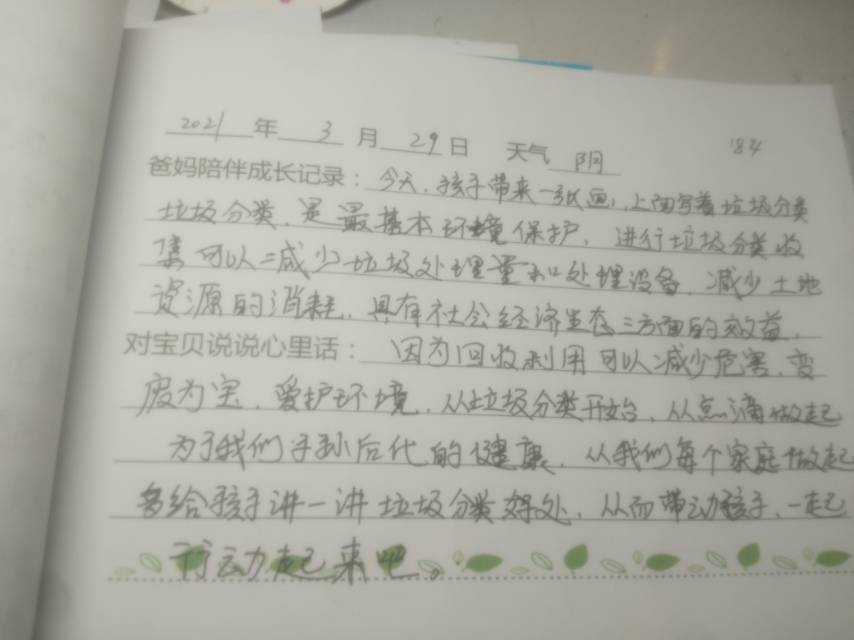 2021年3月29日 天气 阴
184
爸妈陪伴成长记录：今天，孩子带来一张画，上面写着垃圾分类
垃圾分类，是最基本环境保护，进行垃圾分类收
集可以减少垃圾处理量和处理设备，减少土地
资源的消耗，具有社会经济生态三方面的效益，
对宝贝说说心里话：因为回收利用可以减少危害，变
废为宝，爱护环境，从垃圾分类开始，从点滴做起
为了我们子孙后代的健康，从我们每个家庭做起
多给孩子讲一讲垃圾分类好处，从而带动孩子，一起
行动起来吧。